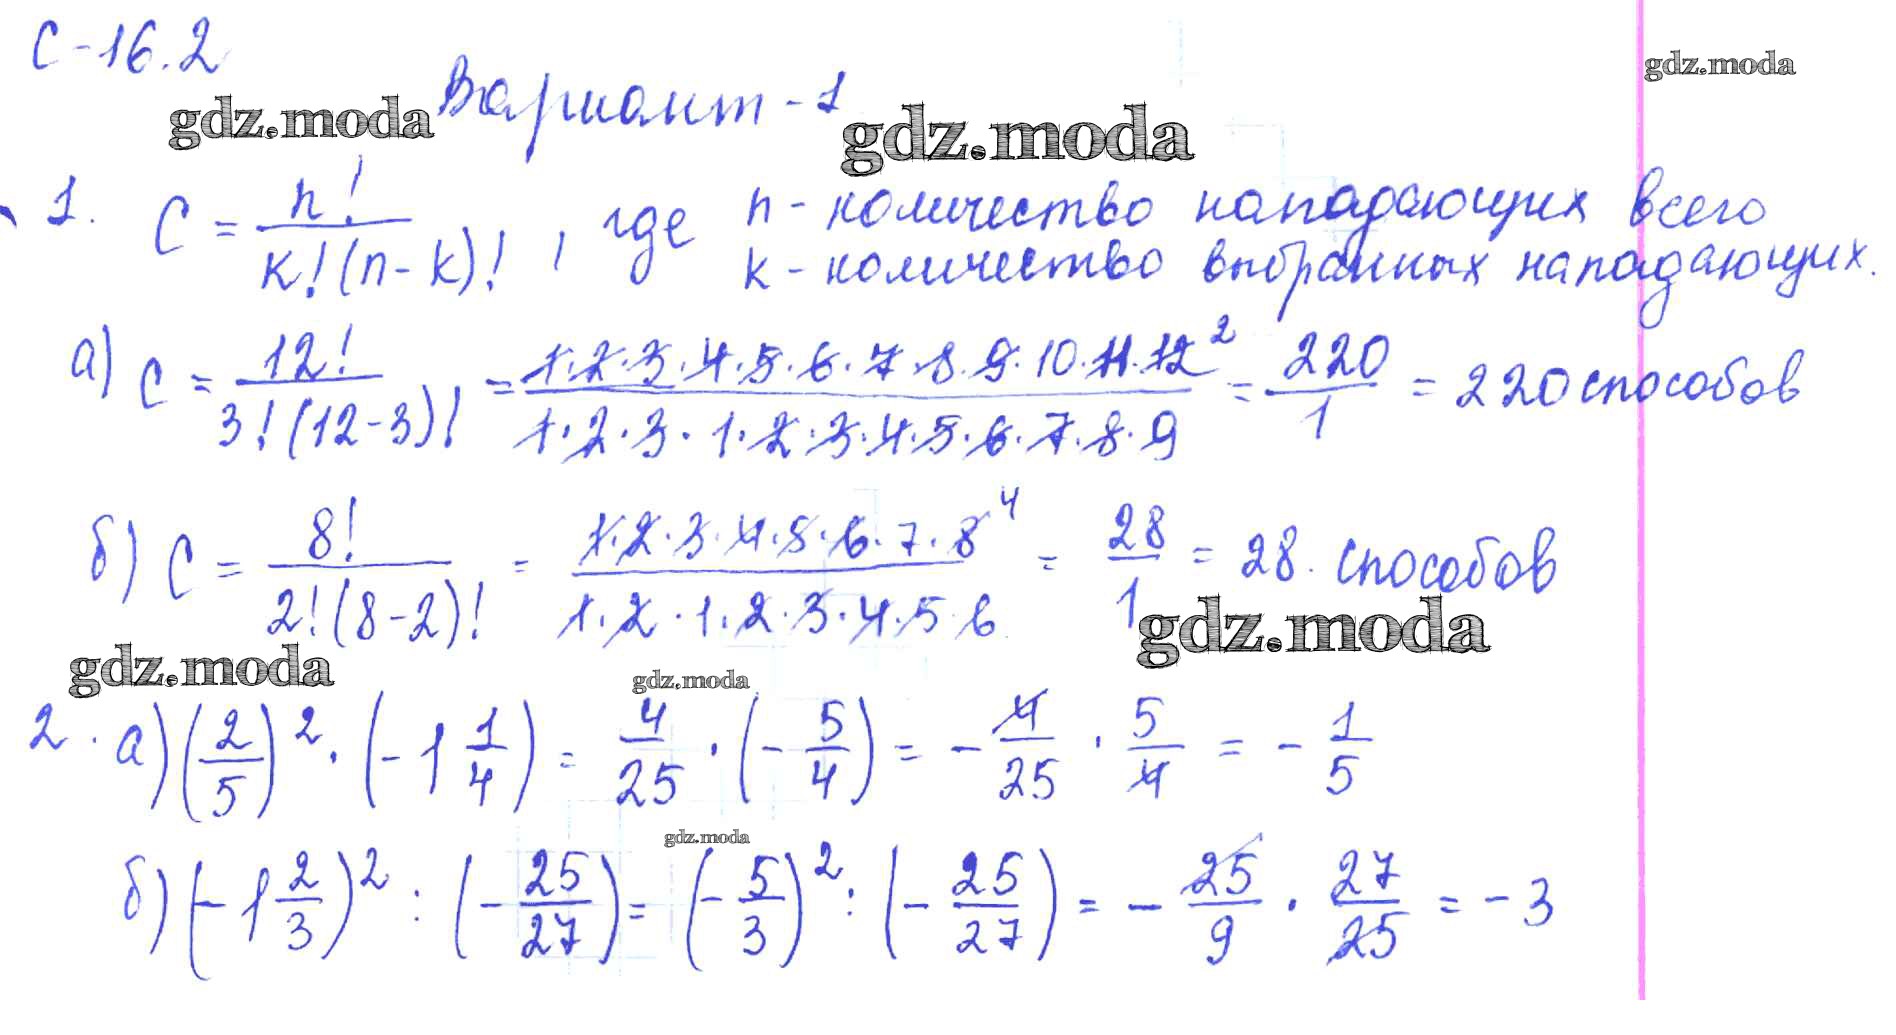 С-16.2
gdz.moda
Вариант-1
gdz.moda
gdz.moda
1. C = n! / k!(n-k)!, где n - количество нападающих всего
k - количество выбранных нападающих.
а) C = 12! / 3!(12-3)! = 1·2·3·4·5·6·7·8·9·10·11·12² / 1·2·3·1·2·3·4·5·6·7·8·9 = 220/1 = 220 способов
б) C = 8! / 2!(8-2)! = 1·2·3·4·5·6·7·8⁴ / 1·2·1·2·3·4·5·6 = 28/1 = 28. способов
gdz.moda
gdz.moda
gdz.moda
2. а) (2/5)² · (-1 1/4) = 4/25 · (-5/4) = - 4/25 · 5/4 = - 1/5
gdz.moda
б) (-1 2/3)² : (-25/27) = (-5/3)² : (-25/27) = - 25/9 · 27/25 = -3